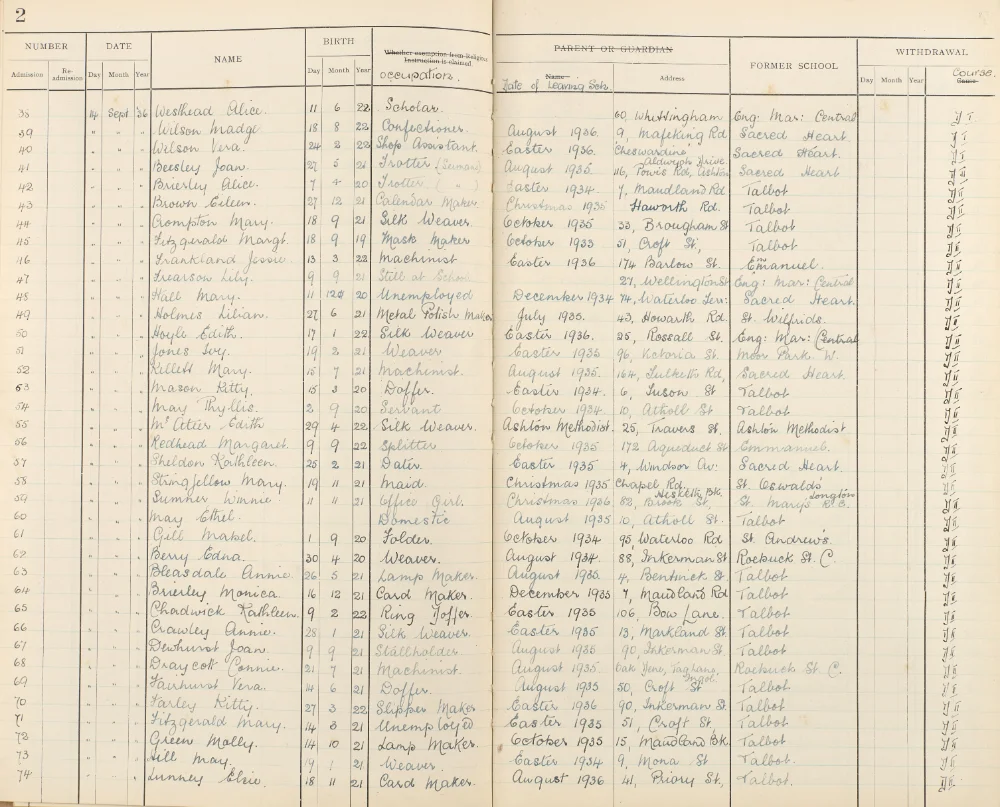 2
NUMBER DATE NAME BIRTH Whether exemption from Religious Instruction is claimed. PARENT OR GUARDIAN FORMER SCHOOL WITHDRAWAL
Admission Re-admission Day Month Year Day Month Year occupation. Name Date of Leaving Sch. Address Day Month Year Cause Course.
38 14 Sept 36 Westhead Alice. 11 6 22 Scholar. 60, Whittingham Eng: Mar: Central
39 " " " Wilson Madge 18 8 22 Confectioner August 1936. 9, Mafeking Rd Sacred Heart.
40 " " " Wilson Vera. 24 2 22 Shop Assistant. Easter 1936. Cheswardine Aldwych Drive. Sacred Heart.
41 " " " Beesley Joan. 27 5 21 Trotter (Seaman) August 1935. 116, Powis Rd, Ashton Sacred Heart
42 " " " Brierley Alice. 7 4 20 Trotter ( " ) Easter 1934. 7, Maudland Rd Talbot
43 " " " Brown Eileen. 27 12 21 Calendar Maker. Christmas 1935 Haworth Rd. Talbot
44 " " " Crompton Mary. 18 9 21 Silk Weaver October 1935 33, Brougham St Talbot
45 " " " Fitzgerald Margt. 18 9 19 Mask Maker October 1933 51, Croft St, Talbot
46 " " " Frankland Jessie. 13 3 22 Machinist Easter 1936 174 Barlow St. Emmanuel.
47 " " " Frearson Lily. 9 9 21 Still at School 27, Wellington St Eng: Mar: Central
48 " " " Hall Mary. 11 12 20 Unemployed December 1934 74, Waterloo Terr: Sacred Heart.
49 " " " Holmes Lilian. 27 6 21 Metal Polish Maker July 1935. 43, Howarth Rd. St. Wilfrids.
50 " " " Hoyle Edith. 17 1 22 Silk Weaver Easter 1936. 25, Rossall St. Eng: Mar: Central
51 " " " Jones Ivy. 19 2 21 Weaver Easter 1935 96, Victoria St. Moor Park. W.
52 " " " Killett Mary. 15 7 21 Machinist. August 1935. 164, Tulketh Rd, Sacred Heart.
53 " " " Mason Kitty. 15 3 20 Doffer. Easter 1934. 6, Tuson St Talbot
54 " " " May Phyllis. 2 9 20 Servant October 1934. 10, Atholl St Talbot
55 " " " McAteer Edith 29 4 22 Silk Weaver. Ashton Methodist. 25, Travers St. Ashton Methodist
56 " " " Redhead Margaret. 9 9 22 Splitter October 1935 172 Aqueduct St Emmanuel.
57 " " " Sheldon Kathleen. 25 2 21 Dater. Easter 1935 4, Windsor Av: Sacred Heart.
58 " " " Stringfellow Mary. 19 11 21 Maid. Christmas 1935 Chapel Rd. Hesketh Bk. St. Oswalds' Longton
59 " " " Sumner Winnie 11 4 21 Office Girl. Christmas 1936 52, Brook St, St. Mary's R.C.
60 " " " May Ethel. Domestic August 1935 10, Atholl St. Talbot
61 " " " Gill Mabel. 1 9 20 Folder. October 1934 95, Waterloo Rd St. Andrews.
62 " " " Berry Edna. 30 4 20 Weaver. August 1934. 88, Inkerman St Roebuck St. C.
63 " " " Bleasdale Annie. 26 5 21 Lamp Maker. August 1935. 4, Bentinick St Talbot
64 " " " Brierley Monica. 16 12 21 Card Maker. December 1935 7, Maudland Rd Talbot
65 " " " Chadwick Kathleen. 9 2 22 Ring Doffer. Easter 1935 106, Bow Lane. Talbot.
66 " " " Crawley Annie. 28 1 21 Silk Weaver. Easter 1935 13, Markland St. Talbot
67 " " " Dewhurst Joan. 9 9 21 Stallholder August 1935. 90, Inkerman St Talbot
68 " " " Draycott Connie. 21 7 21 Machinist. August 1935. Roebuck St. C.
69 " " " Fairhurst Vera. 14 6 21 Doffer. August 1935 50, Croft St Talbot.
70 " " " Farley Kitty. 27 3 22 Slipper Maker Easter 1936 90, Inkerman St Talbot
71 " " " Fitzgerald Mary. 14 3 21 Unemployed Easter 1935 51, Croft St. Talbot
72 " " " Green Molly. 14 10 21 Lamp Maker. October 1935 15, Maudland Bk. Talbot.
73 " " " Hill May. 19 1 21 Weaver. Easter 1934 9, Mona St Talbot.
74 " " " Lunney Elsie. 18 11 21 Card Maker. August 1936 41, Priory St, Talbot.